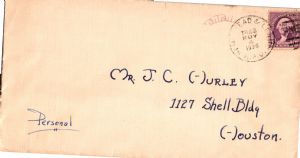 Mr. J. C. Hurley
1127 Shell. Bldg
Houston.
Personal